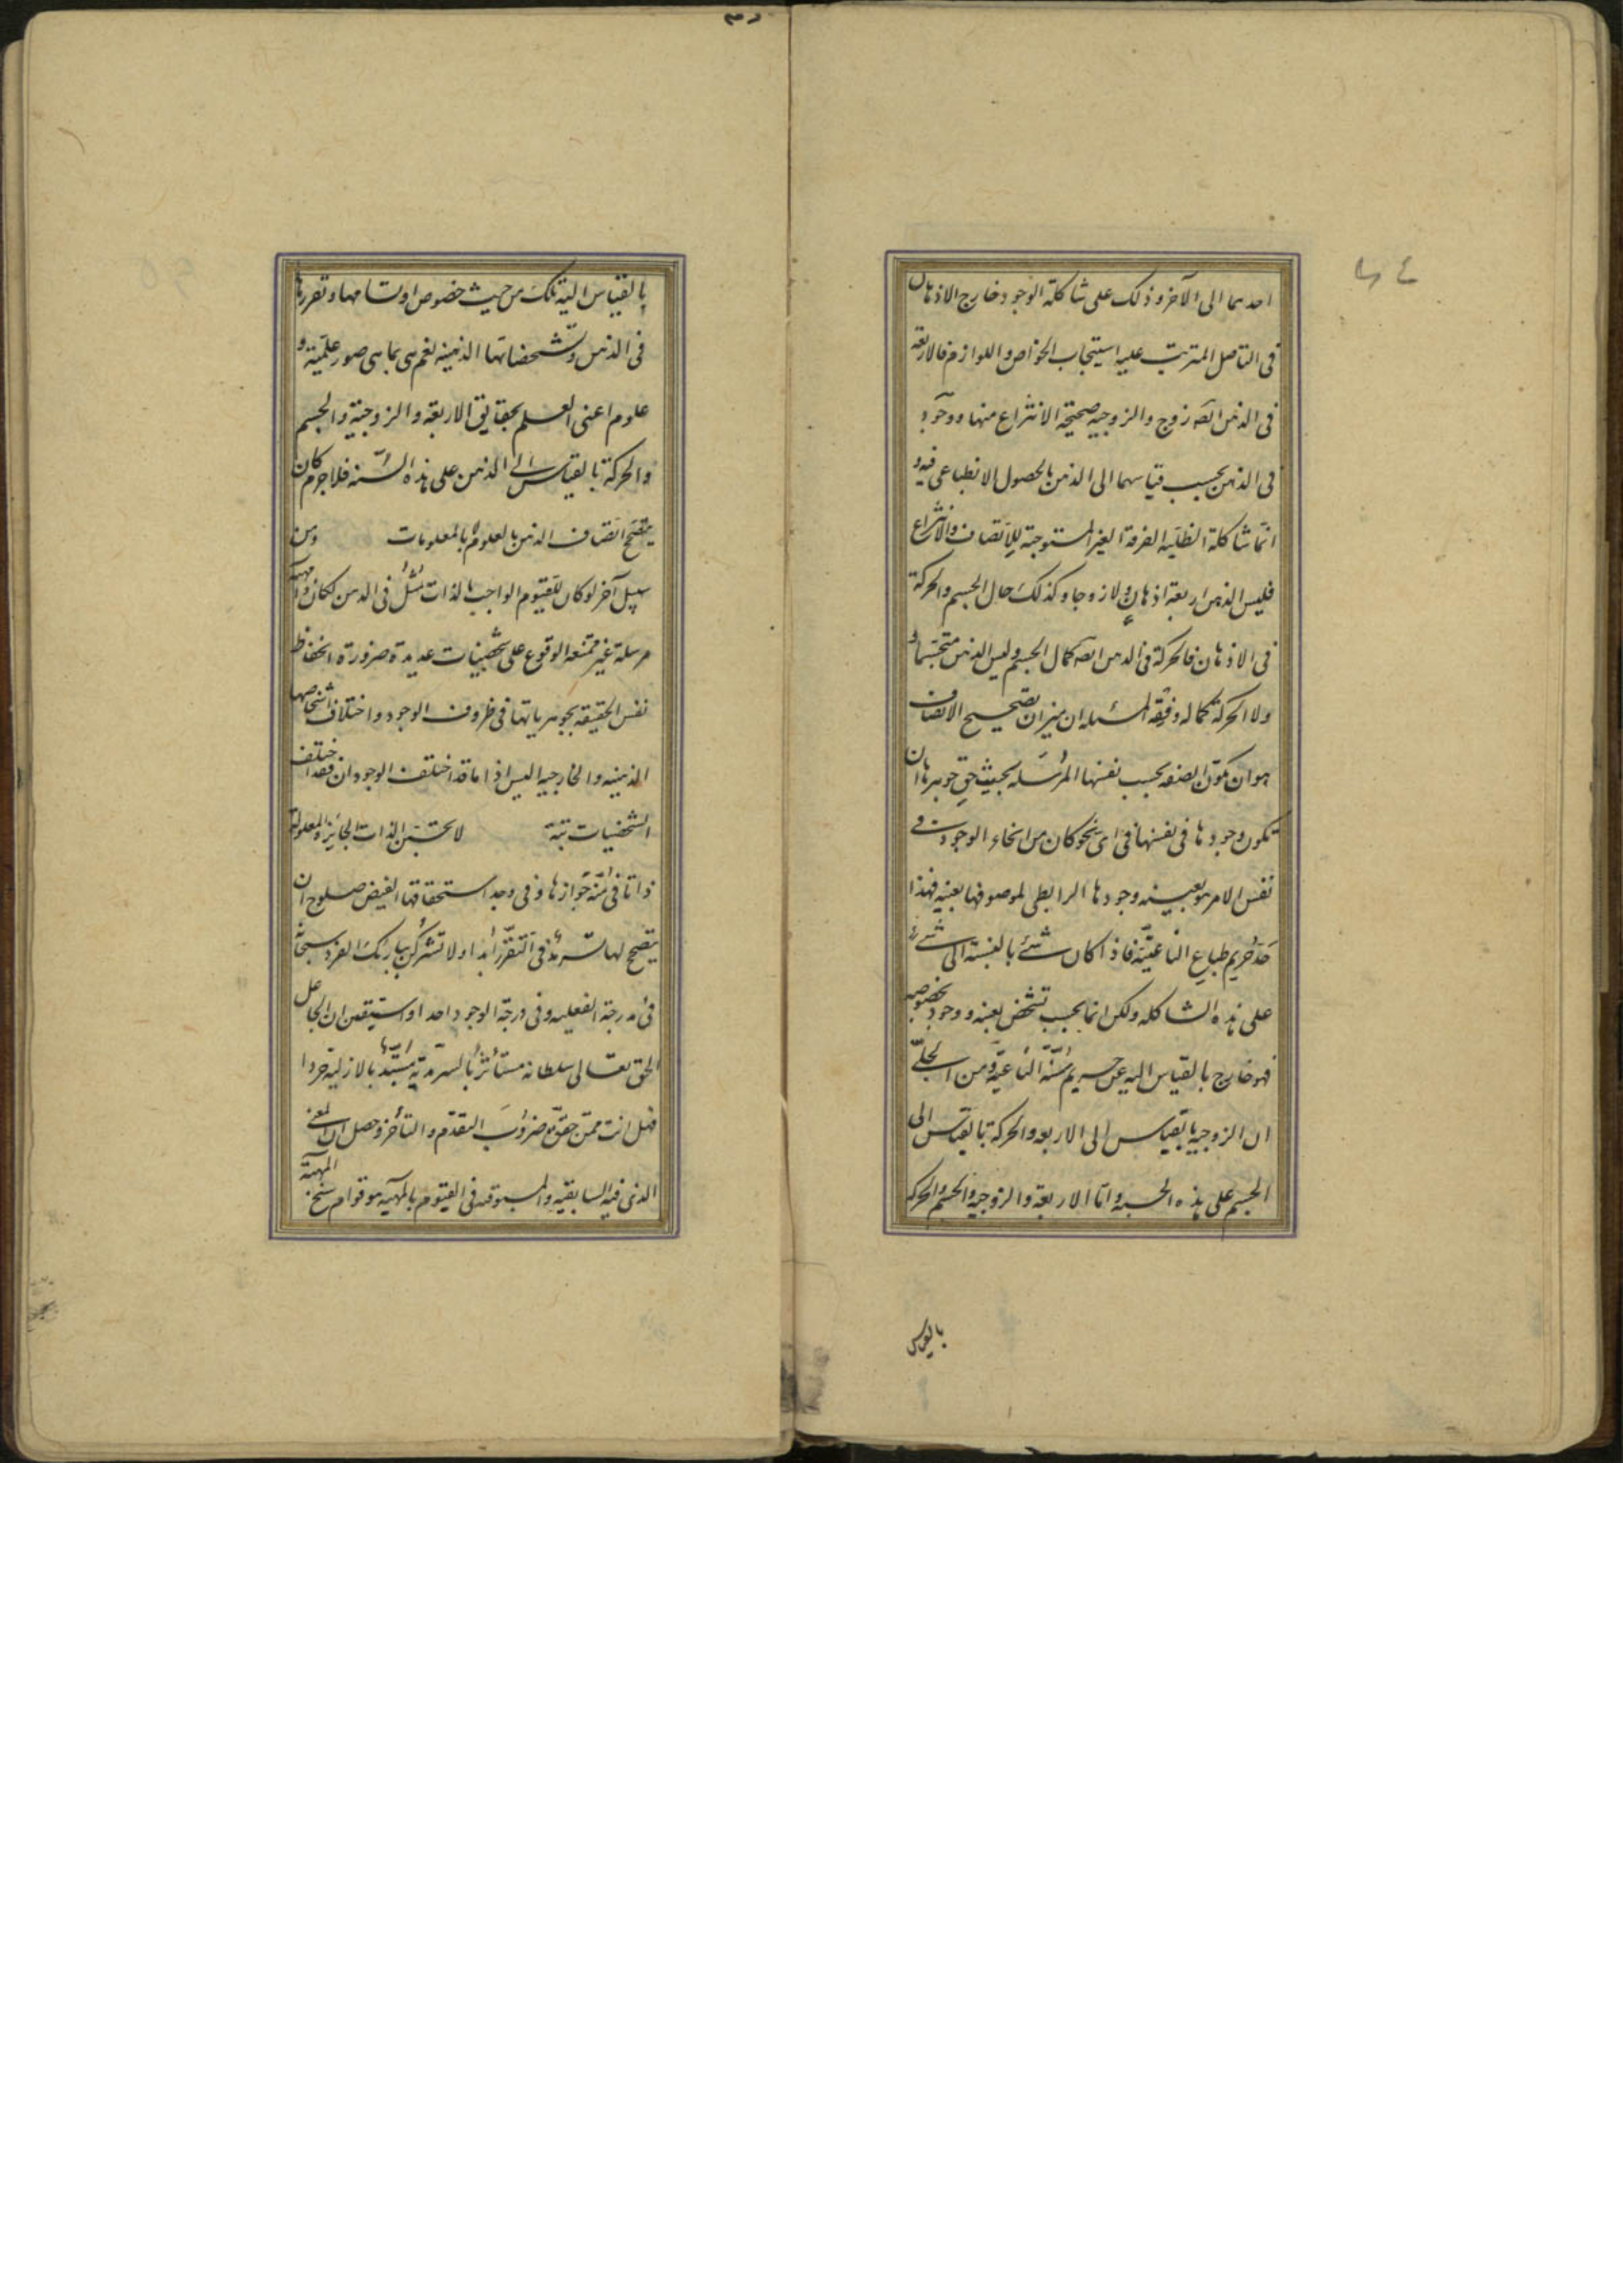 احدهما الى الآخر وذلك على شاكلة الوجود خارج الاذهان
فى التاصل المترتب عليه استيجاب الخواص واللوازم فالاربعة
فى الذهن ايضه زوج والزوجيه صحيحة الانتزاع منها ووجود
فى الذهن بحسب قياسهما الى الذهن بالحصول الانطباعى فيه و
انما شاكلة الظليه الصرفة الغير المستوجبة للاتصاف والانتزاع
فليس الذهن اربعة اذهان ولا زوجا وكذلك حال الجسم والحركة
فى الاذهان فالحركة فى الذهن ايضه كمال الجسم وليس الذهن متجسما و
ولا الحركة كماله وفقه المسئله ان ميزان تصحيح الاتصاف
هو ان يكون الصفه بحسب نفسها المرسله بحيث حق جوهرها ان
تكون وجودها فى نفسها فى اى نحو كان من انحاء الوجود فى
نفس الامر هو بعينه وجودها الرابطى لموصوفها بعينه فهذا
حد حريم طباع الناعتيه فاذا كان شئ بالنسبة الى شئ
على هذه الشاكله ولكن انما بحسب تشخص بعينه ووجود بخصوصه
فهو خارج بالقياس اليه عن حريم سنة الناعتية ومن الجلى
ان الزوجيه بالقياس الى الاربعه والحركة بالقياس الى
الجسم على هذه الحسبه واما الاربعة والزوجيه والجسم والحركه
بالقياس
بالقياس اليه تلك من حيث خصوص ارتسامها وتقررها
فى الذهن وتشخصاتها الذهنيه نعم هى بما هى صور علميّة و
علوم اعنى العلم بحقايق الاربعة والزوجية والجسم
والحركة بالقياس الى الذهن على هذه السّنه فلا جرم كان
يتصحّح اتصاف الذهن بالعلوم لا بالمعلومات ومن
سبيل آخر لو كان للقيوم الواجب بالذات تمثل فى الذهن لكان مهية
مرسلة غير ممتنعة الوقوع على تشخصيات عديدة ضرورة انحفاظ
نفس الحقيقه بجوهرياتها فى ظروف الوجود واختلاف اشخاصها
الذهنيه والخارجيه اليس اذا ما قد اختلف الوجودان فقد اختلف
التشخصيات بتة لا تحسبن الذات الجائزة المعلولة
ذاتا فى منّة جوازها وفى وجد استحقاقها الفيض صلوح ان
يتصحح لها تسرمد فى التقرر ابدا ولا تشركن ببارئك الفرد سبحانه
فى درجة الفعليه وفى درجة الوجود احدا واستيقن ان الجاعل
الحق تعالى سلطانه مستأثر بالسرمدية مستبدّ بالازلية
فهل انت ممن حقّق ضروب التقدّم والتأخر وحصل ان المعنى
الذى فيه السابقيه والمسبوقيه فى التقدم بالمهيه هو قوام سنخ المهية